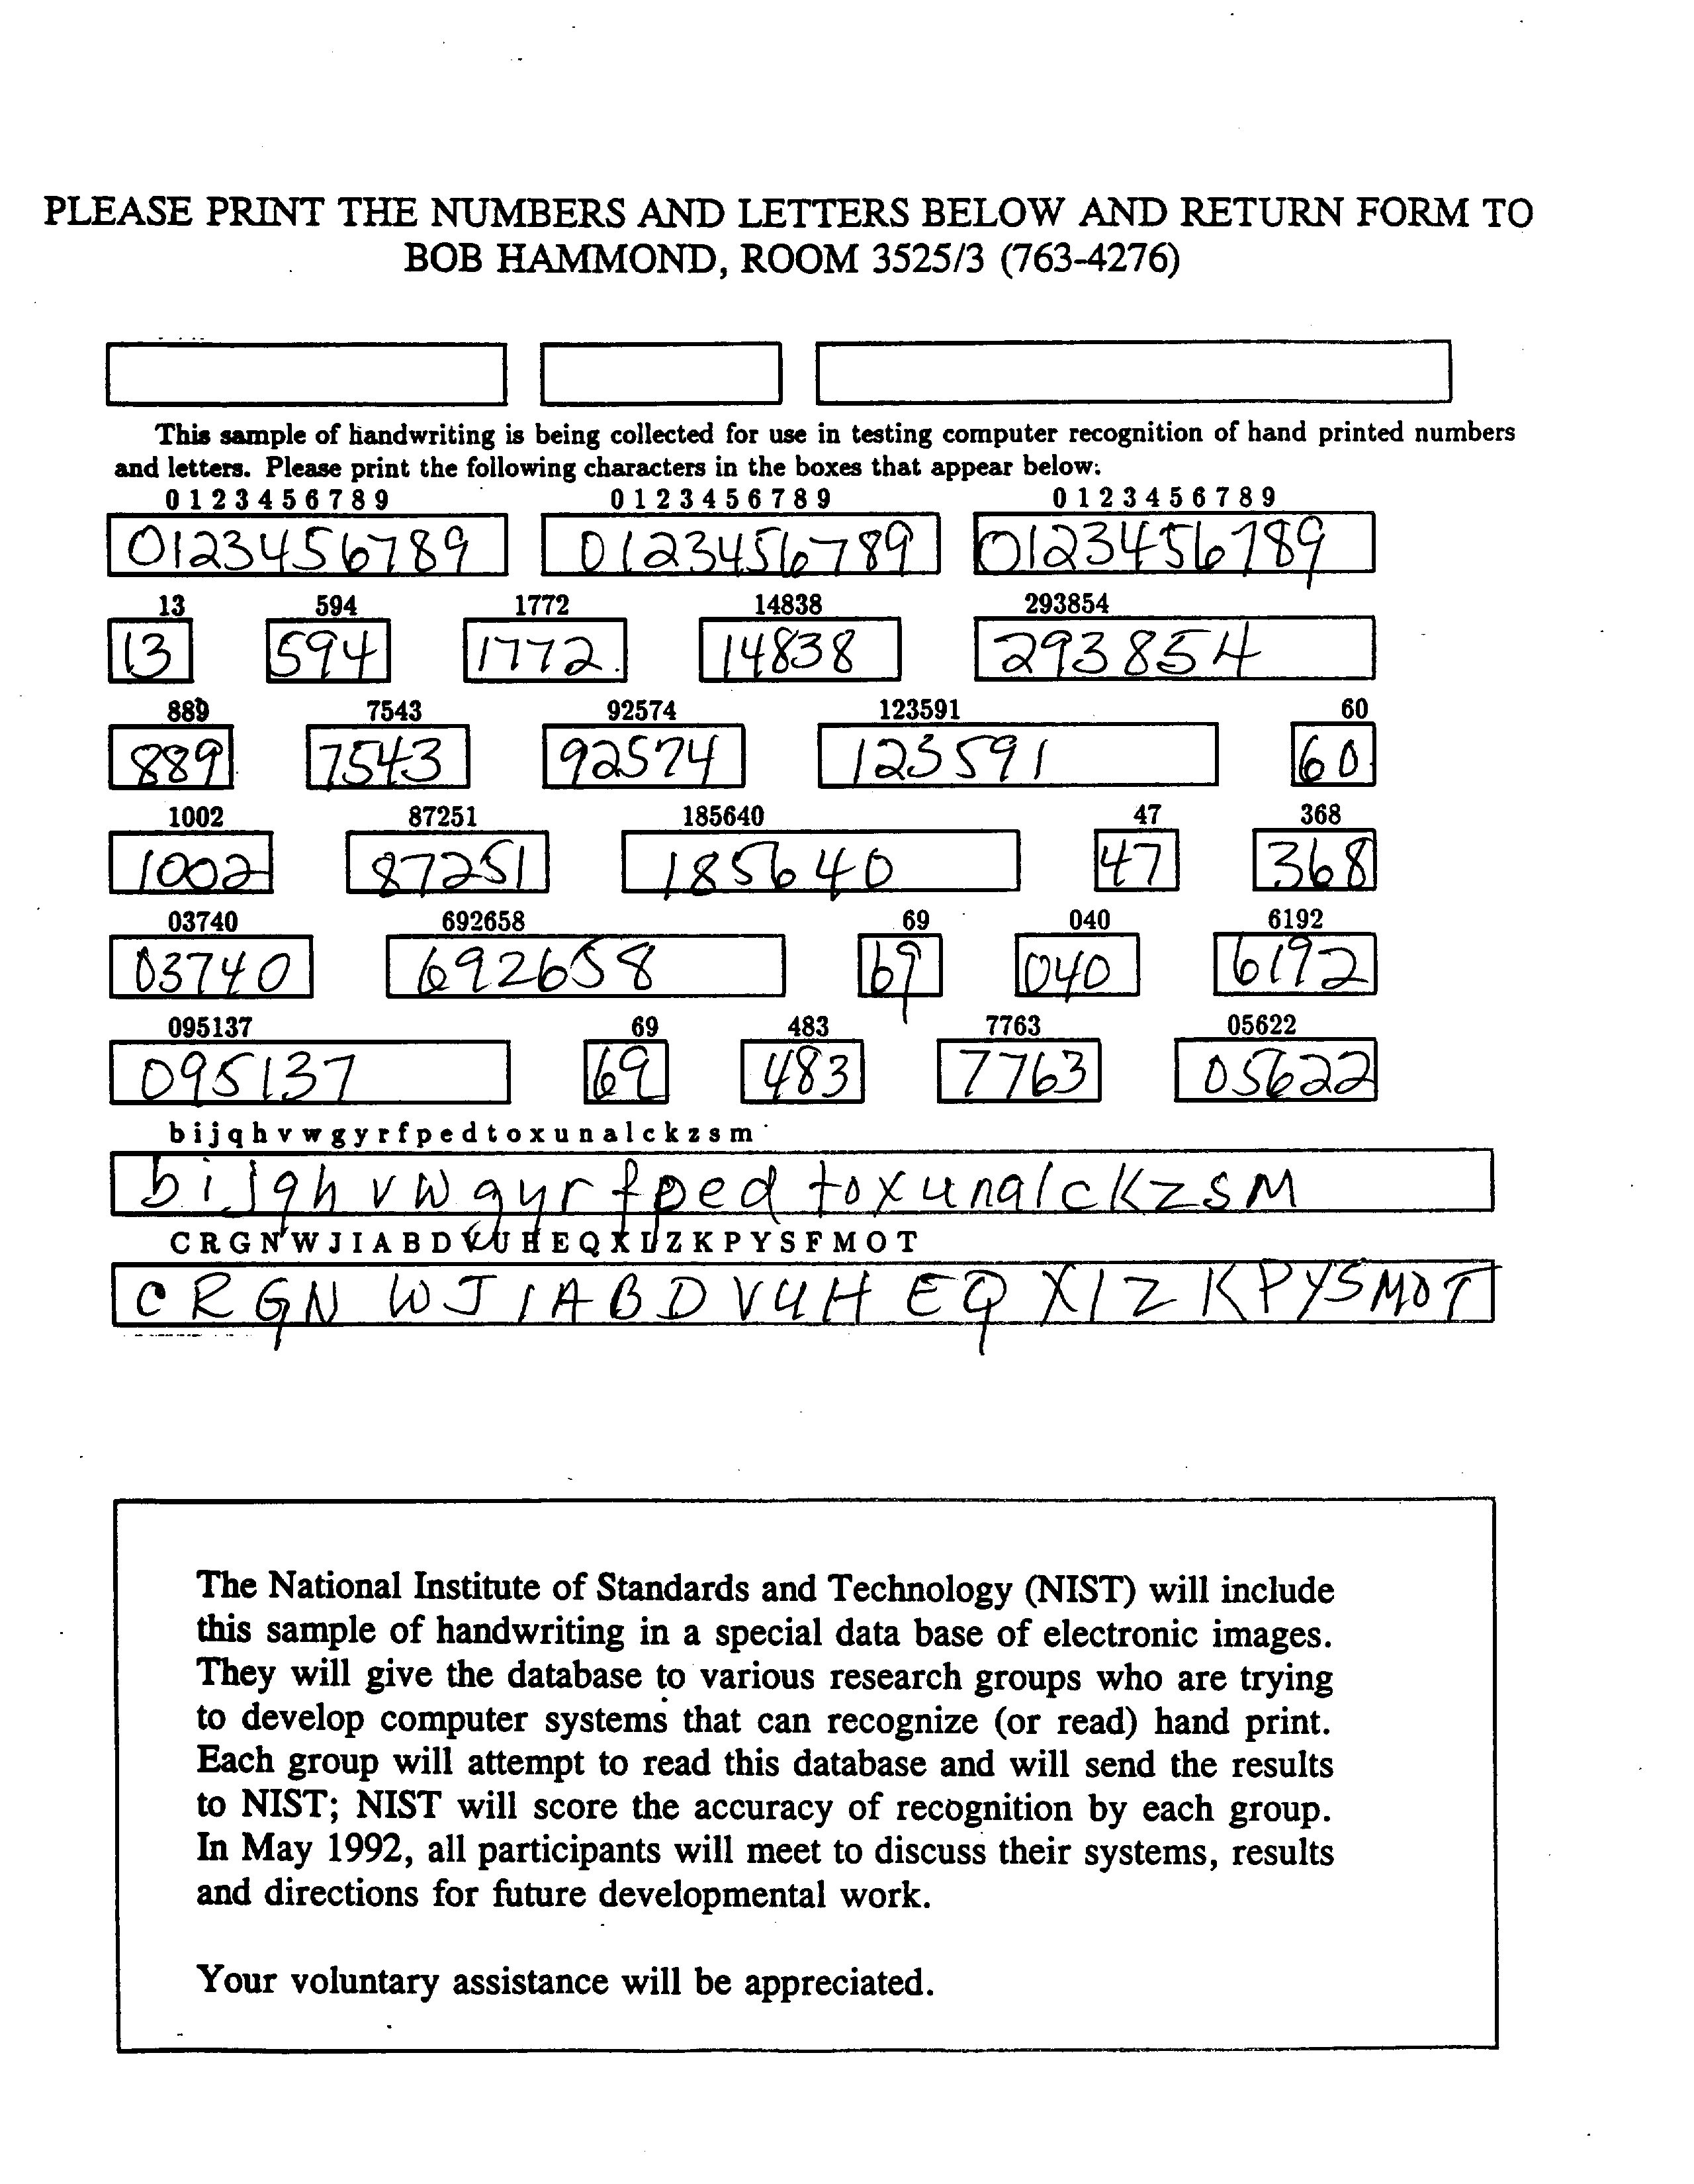 PLEASE PRINT THE NUMBERS AND LETTERS BELOW AND RETURN FORM TO
BOB HAMMOND, ROOM 3525/3 (763-4276)
This sample of handwriting is being collected for use in testing computer recognition of hand printed numbers
and letters. Please print the following characters in the boxes that appear below.
0 1 2 3 4 5 6 7 8 9 0 1 2 3 4 5 6 7 8 9 0 1 2 3 4 5 6 7 8 9
0123456789 0123456789 0123456789
13 594 1772 14838 293854
13 594 1772 14838 293854
889 7543 92574 123591 60
889 7543 92574 123591 60
1002 87251 185640 47 368
1002 87251 185640 47 368
03740 692658 69 040 6192
03740 692658 69 040 6192
095137 69 483 7763 05622
095137 69 483 7763 05622
b i j q h v w g y r f p e d t o x u n a l c k z s m
b i j q h v w g y r f p e d t o x u n a l c k z s M
C R G N W J I A B D V U H E Q X L Z K P Y S F M O T
C R G N W J I A B D V U H E Q X I Z K P Y S M O T
The National Institute of Standards and Technology (NIST) will include
this sample of handwriting in a special data base of electronic images.
They will give the database to various research groups who are trying
to develop computer systems that can recognize (or read) hand print.
Each group will attempt to read this database and will send the results
to NIST; NIST will score the accuracy of recognition by each group.
In May 1992, all participants will meet to discuss their systems, results
and directions for future developmental work.
Your voluntary assistance will be appreciated.